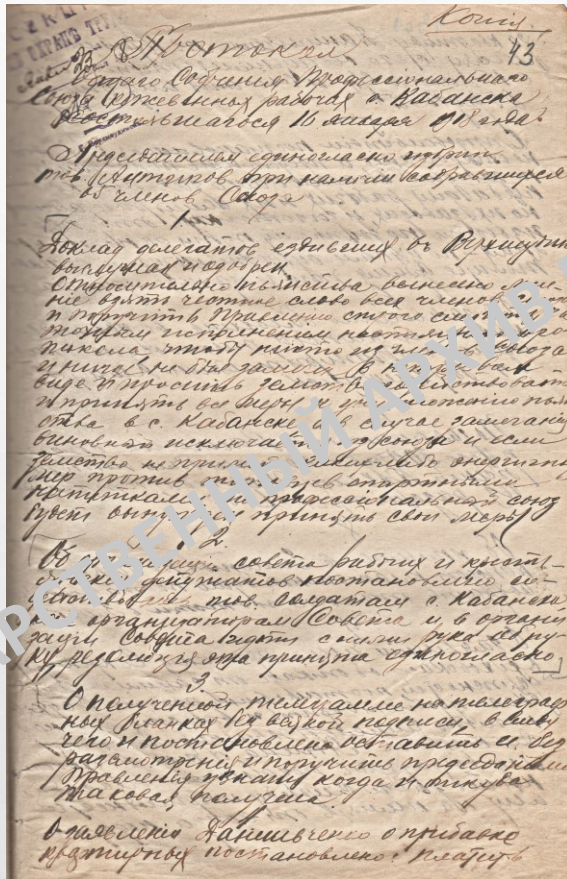 Копия.
43
Протокол
Общаго Собрания Профессиональнаго
Союза Кожевенных рабочих с. Кабанска
состоявшагося 16 января 1918 года
Председателем единогласно избран
тов. при наличии собравшихся
членов Союза
1
Доклад делегатов ездивших в Верхнеудинск
выслушан и одобрен.
Относительно пьянства вынесено мне-
ние взять честное слово всех членов
и поручить Правлению строго следить за
точным исполнением настоящего про-
токола чтобы никто из членов союза
и ничего не был замечен в нетрезвом
виде и просить земство
и принять все меры к пьян-
ства в с. Кабанске а в случае замечания
виновной исключать из союза и если
земство не примет каких либо энергичных
мер против спиртными
напитками то профессиональный союз
будет принять свои меры
2
Об совета рабочих и кресть-
депутатов постановлено
тов. солдатам с. Кабанска
организаторам Совета и в органи-
зации Совдепа идти с ними рука об ру-
ку резолюция эта принята единогласно
3
О полученной телеграмме на телеграф-
ных бланках без всякой подписи, в виду
чего и постановлено оставить её без
разсмотрения и поручить председателю
Правления узнать когда и откуда
таковая получена.
О заявлении Данильченко о прибавке
квартирных постановлено: платить
АРСТВЕННЫЙ АРХИВ